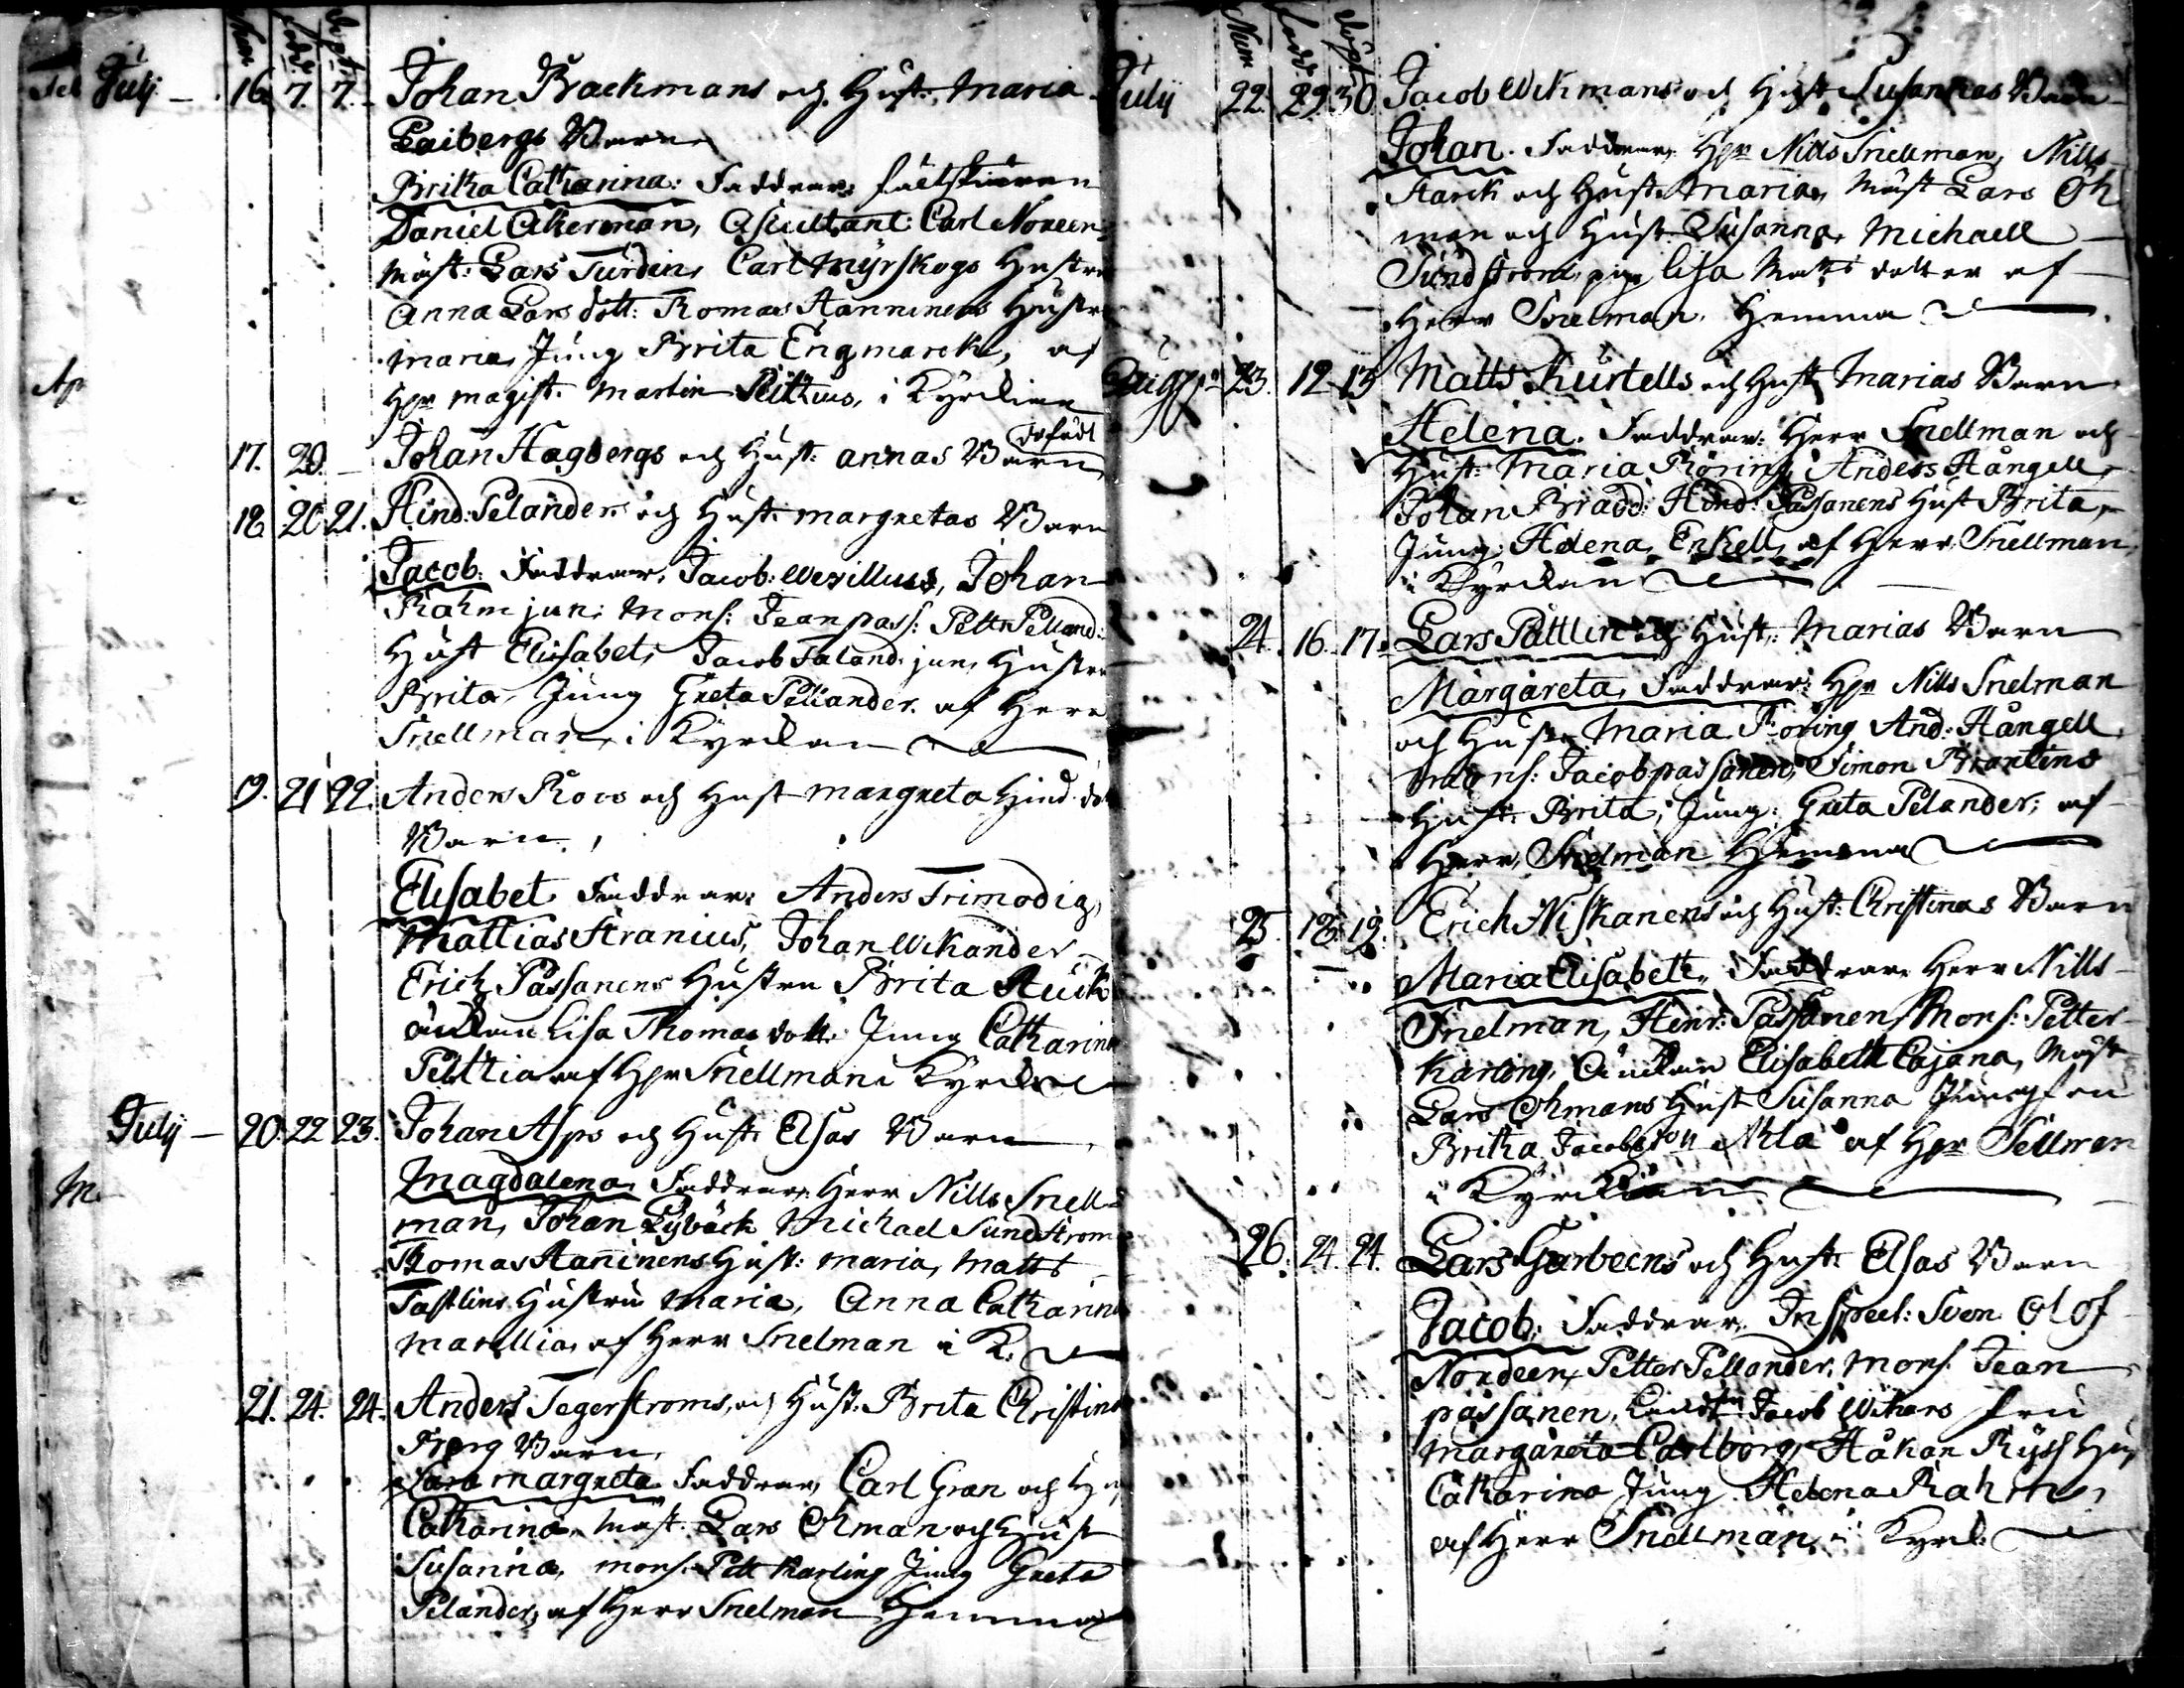 Num Född Döpt
July 16. 7. 7. Johan Brackmans och Hust: Maria
Laibergs Barn
Britha Catharina. Faddrar: fältskiären
Daniel Åkerman, Ascultant Carl Noreen
Mäst: Lars Turdin, Carl Myrskogs Hustru
Anna Lars dott: Thomas Hanninens Hustru
Maria, Jung Brita Engmarck, af
Hr Magist. Martin Pittius, i Kyrckian
17. 20. Johan Hagbergs och Hust: Annas Barn dödfödt
18 20 21. Hind: Pelanders och Hust: Margretas Barn
Jacob. Faddrar, Jacob Wexillius, Johan
Rahm jun: Mons: Jean pass: Pettr Pelland:
Hust Elisabet, Jacob Faland. jun, Hustru
Brita, Jung Greta Pellander. af Herr
Snellman, i Kyrckan
19. 21 22. Anders Roos och Hust Margreta Hind. dott
Barn,
Elisabet Faddrar: Anders Frimodig,
Mattias Stranius, Johan Wikander
Erich Passanens Hustru Brita
Änckan Lisa Thomas dott. Jung Catharina
Pettia af Hr Snellman i Kyrck
July 20. 22 23. Johan Asps och Hust: Elsas Barn
Magdalena, Faddrar, Herr Nills Snell-
man, Johan Lybäck Michael Sundstrom
Thomas Haninens Hust: Maria, Matts
Fastlins Hustru Maria, Anna Catharina
Marellia, af Herr Snelman i K.
21. 24. 24. Anders Tegerstroms, och Hust: Brita Christina
Barn,
Sara Margreta Faddrar, Carl Gran och Hu
Catharina, Mäst: Lars Öhman och Hust
Susanna, Mons: Pett Karling Jung Greta
Pelander, af Herr Snelman Hemma
Num Född Döpt
July 22. 29. 30. Jacob Wikmans och Hust Susannas Barn
Johan. Faddrar, Hr Nills Snellman, Nills
Starck och Hust: Maria, Mäst Lars Öh
man och Hust Susanna, Michaell
Sundstrom, pig: Lisa Matts dotter af
Herr Snelman. Hemma
Augg: 23. 12 13 Matts Kurtells och Hust Marias Barn
Helena. Faddrar: Herr Snellman och
Hust: Maria Röring, Anders Hångell,
Johan Bradd: Hind: Passanens Hust Brita,
Jung: Helena Enkell, af Herr Snellman
i Kyrckan
24. 16. 17. Lars Pattlin och Hust: Marias Barn
Margareta, Faddrar: Hr Nills Snelman
och Hust: Maria Roring And: Hångell.
Mons: Jacob passanen, Simon Brantins
Hust: Brita, Jung: Greta Pelander, af
Herr Snelman Hemma
25. 18. 19. Erich Niskanens och Hust: Christinas Barn
Maria Elisabeth. Faddrar, Herr Nills
Snelman, Henr: Passanen Mons: Petter
Karling, Änckan Elisabeth Cajana, Mäst
Lars Öhmans Hust Susanna Jungfru
Britha Jacobs af Hr Sellman
i Kyrckian
26. 24. 24. Lars Garbeens och Hust: Elsas Barn
Jacob, Faddrar, Inspect: Sven Olof
Nordeen, Petter Pellander, Mons Jean
passanen, Jacob Wikars fru
Margareta Carlborg, Håkan Rysch Hu
Catharina Jung Helena Rahm,
af Herr Snellman, i Kyrck.